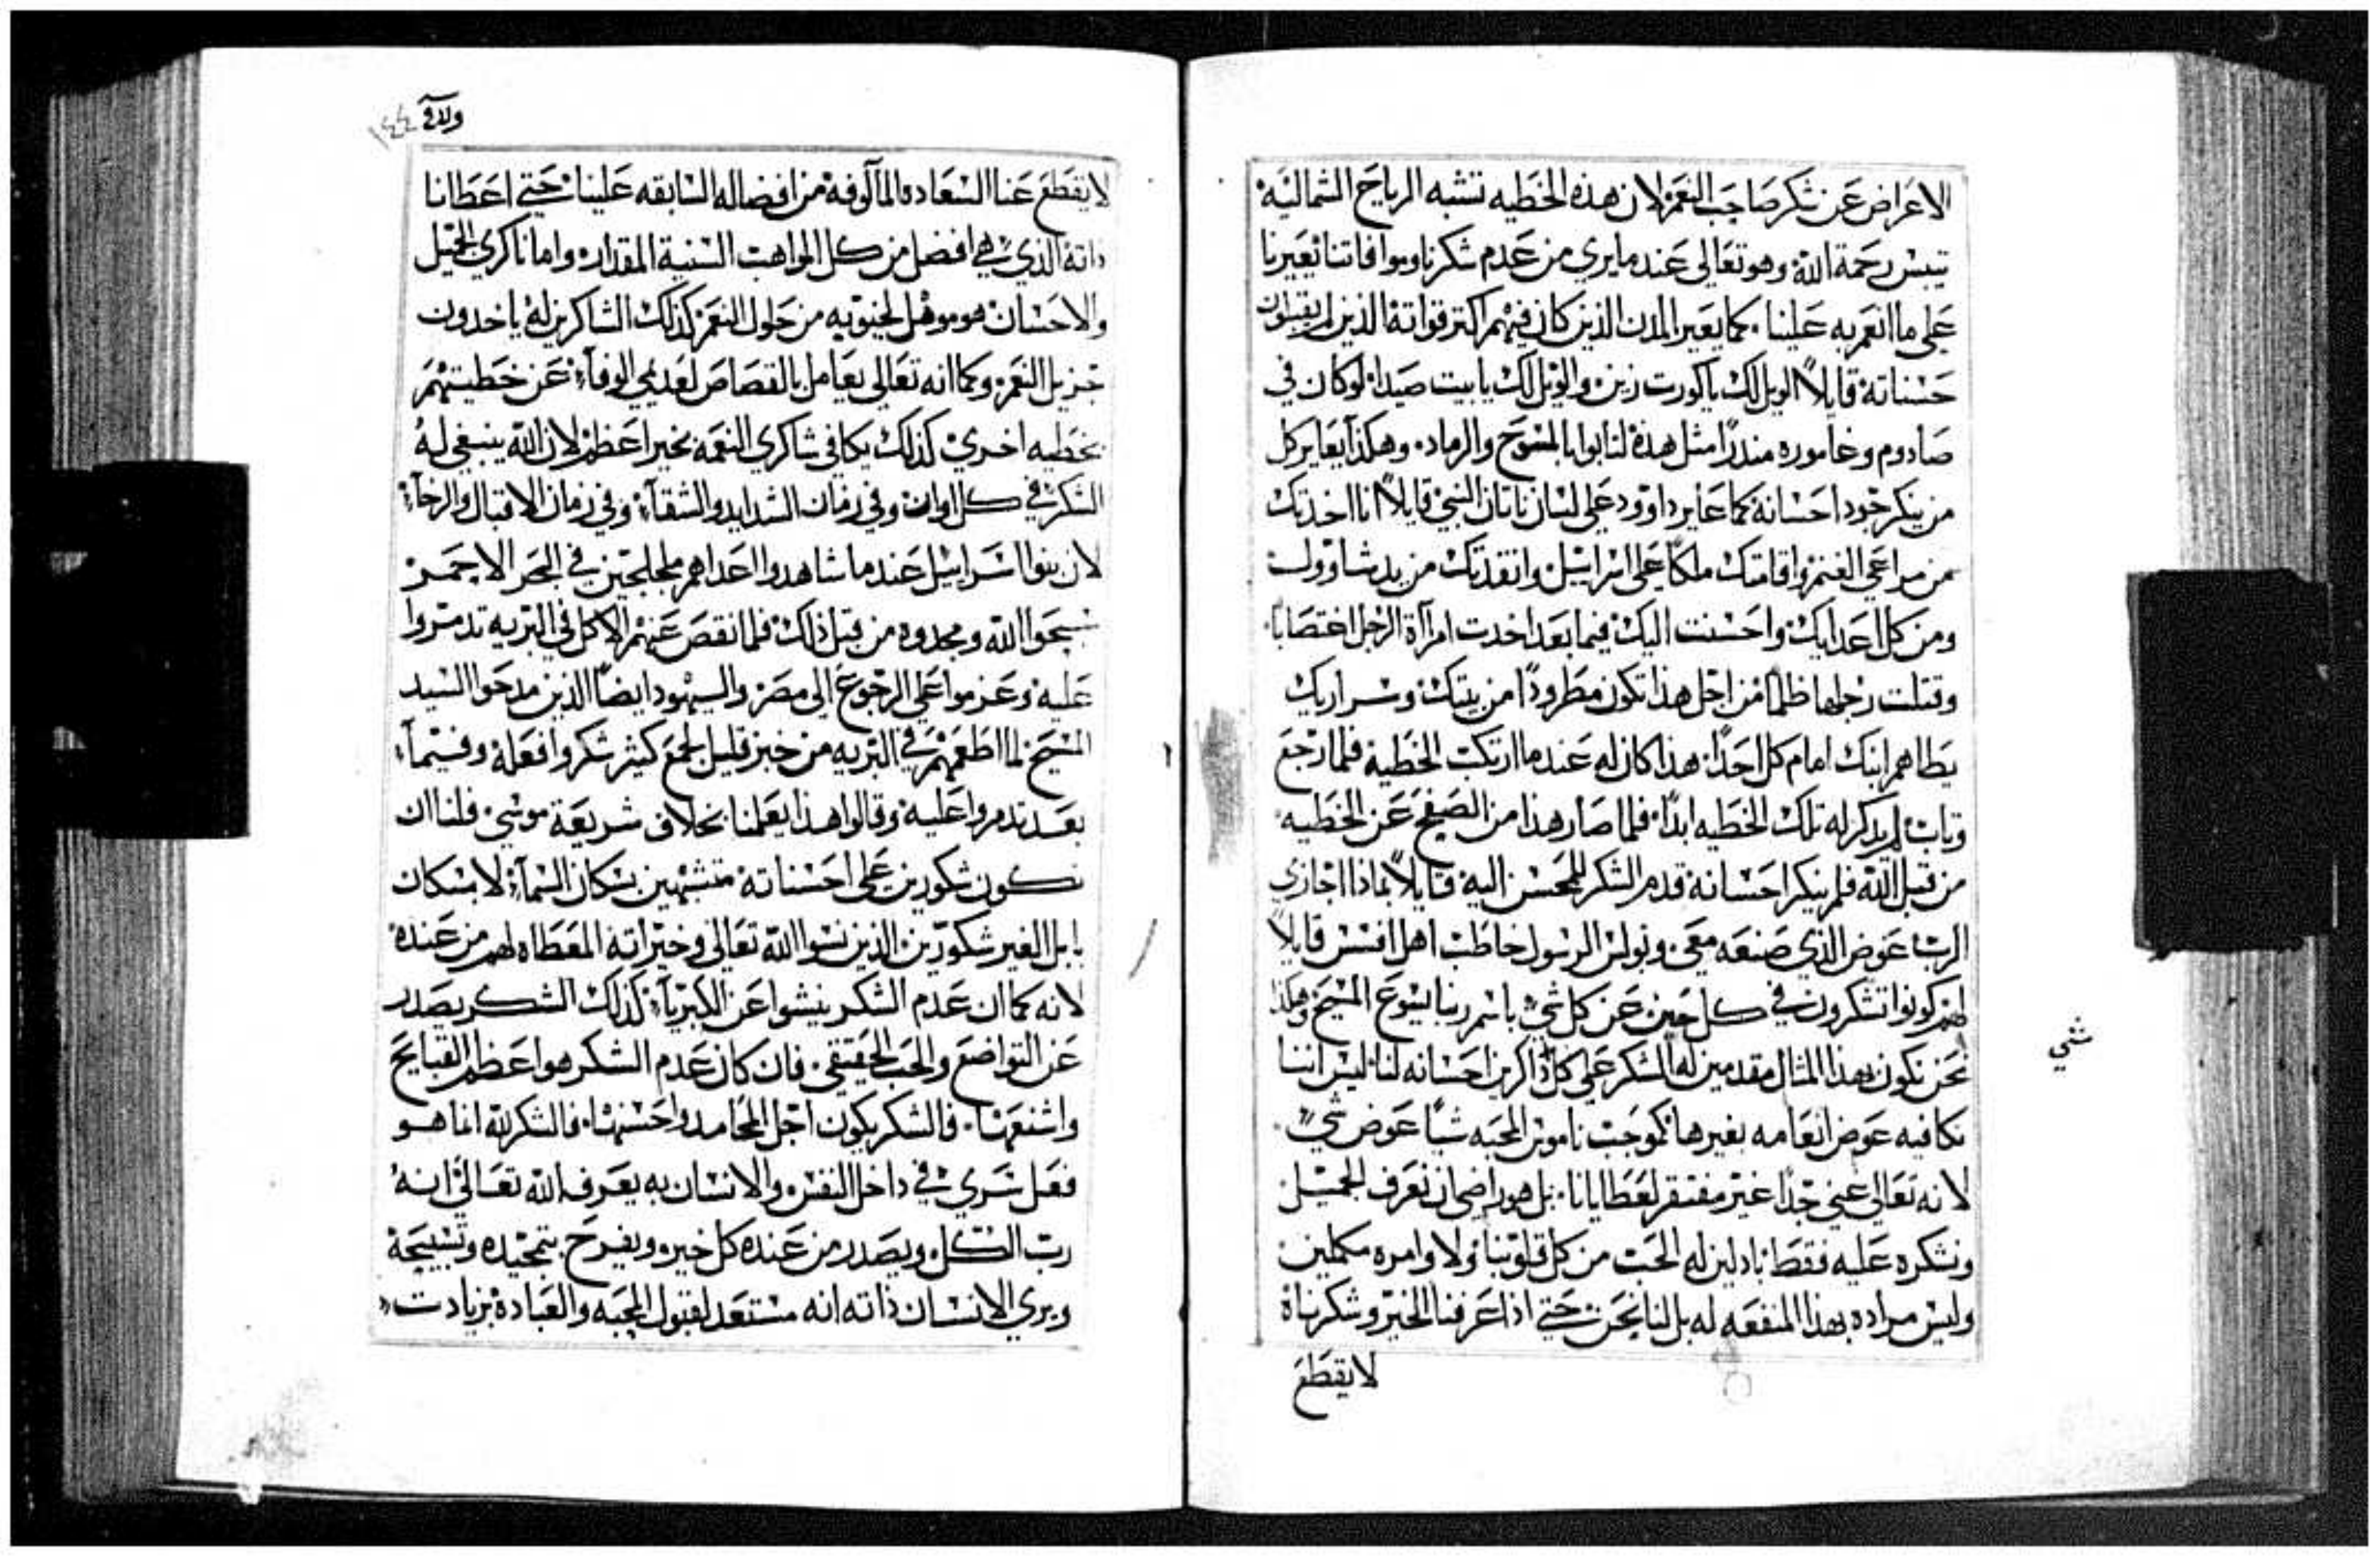 الاعراض عن شكر صاحب النعم لان هذه الخطيه تشبه الرياح الشماليه
تيبس رحمة الله وهو تعالى عندما يري من عدم شكرنا وموافاتنا يعيرنا
علي ما انعم به علينا. كما يعير المدن الذين كان فيهم اكثر قواته الذين لم يقبلون
حسناته قايلاً الويل لك ياكورت زين والويل لك يا بيت صيدا لوكان في
صادوم وغاموره منذرًا مثل هذه لتابوا بالمسوح والرماد. وهكذا يعاير كل
من ينكر جود احسانه كما عاير داوود علي لسان ناتان النبي قايلاً انا اخذتك
من مراعي الغنم واقامتك ملكًا علي اسراييل وانقذتك من يد شاوول
ومن كل اعدايك واحسنت اليك فيما بعد اخدت امرآة الرجل اغتصابًا.
وقتلت رجلها ظلمًا من اجل هذا تكون مطرودًا من بيتك وسراريك
يطاهم ابنك امام كل احد. هذا كان له عندما ارتكب الخطيه فلما رجع
وتاب لم يذكر له تلك الخطيه ابدًا. فلما صار هذا من الصفح عن الخطيه
من قبل الله فلم ينكر احسانه قدم الشكر للمحسن اليه قايلاً بماذا اجازي
الرب عوض الذي صنعه معي. وبولس الرسول خاطب اهل افسس قايلاً
لهم كونوا تشكرون في كل حين عن كل شي باسم ربنا يسوع المسيح وهكذا
نحن نكون بهذا المثال مقدمين له الشكر علي كل ذاكرين احسانه لنا. ليس اننا
شي
نكافيه عوض انعامه بغيرها كموجب ناموس المحبه شيًا عوض شي.
لانه تعالى غني جدًا غير مفتقر لعطايانا. بل هو راضي ان نعرف الجميل
ونشكره عليه فقط باذلين له الحب من كل قلوبنا ولاوامره مكملين
وليس مراده بهذا المنفعه له بل لنا نحن حتي اذا عرفنا الخير وشكرناه
لايقطع
١٤٤
لايقطع عنا السعاده المآلوفه من افضاله السابقه علينا حتي اعطانا
ذاته الذي هي افضل من كل المواهب السنية المقدار. واما ناكري الجميل
والاحسان هو موهل لخيبوبه من حلول النعم كذلك الشاكرين له ياخدون
جزيل النعم. وكما انه تعالى يعامل بالقصاص لعديمي الوفآء عن خطيتهم
بخطيه اخري كذلك يكافي شاكري النعمه بخير اعظم لان الله ينبغي له
الشكر في كل اوان وفي زمان الشدايد والشقآء وفي زمان الاقبال والرخآء
لان بنوا اسراييل عندما شاهدوا اعداهم ملجلجين في البحر الاحمر
سبحوا الله ومجدوه من قبل ذلك فلما نقص عنهم الاكل في البريه تدمروا
عليه وعزموا علي الرجوع الى مصر واليهود ايضًا الذين مدحوا السيد
المسيح لما اطعمهم في البريه من خبز قليل لجمع كثير شكروا فعله وفيما
بعد تدمروا عليه وقالوا هذا يعلمنا بخلاف شريعة موسي. فلنا ان
نكون شكورين علي احسناته متشبهين بسكان السمآء لا بسكان
بابل الغير شكورين الذين نسوا الله تعالى وخيراته المعطاه لهم من عنده
لانه كما ان عدم الشكر ينشوا عن الكبريآء كذلك الشكر يصدر
عن التواضع والحب الحقيقي. فان كان عدم الشكر هو اعظم القبايح
واشنعها. فالشكر يكون اجل المحامد واحسنها. فالشكر لله انما هو
فعل سري في داخل النفس والانسان به يعرف الله تعالى انه
رب الكل ويصدر من عنده كل خير. ويفرح بتمجيده وتسبيحه
ويري الانسان ذاته انه مستعد لقبول المحبه والعباده بزيادت